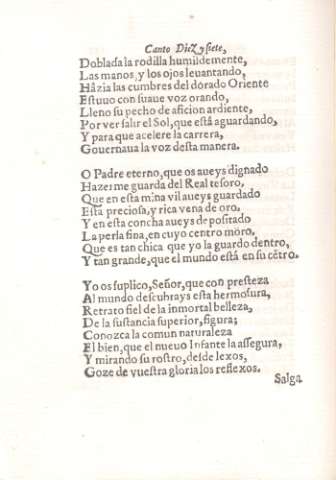 Canto Diez y siete,
Doblada la rodilla humildemente,
Las manos, y los ojos leuantando,
Hàzia las cumbres del dorado Oriente
Estuuo con suaue voz orando,
Lleno su pecho de aficion ardiente,
Por ver salir el Sol, que está aguardando,
Y para que acelere la carrera,
Gouernaua la voz desta manera.
O Padre eterno, que os aueys dignado
Hazerme guarda del Real tesoro,
Que en esta mina vil aueys guardado
Esta preciosa, y rica vena de oro.
Y en esta concha aueys depositado
La perla fina, en cuyo centro moro,
Que es tan chica que yo la guardo dentro,
Y tan grande, que el mundo està en su cẽtro.
Yo os suplico, Señor, que con presteza
Al mundo descubrays esta hermosura,
Retrato fiel de la inmortal belleza,
De la sustancia superior, figura;
Conozca la comun naturaleza
El bien, que el nueuo Infante la assegura,
Y mirando su rostro, desde lexos,
Goze de vuestra gloria los reflexos.
Salga